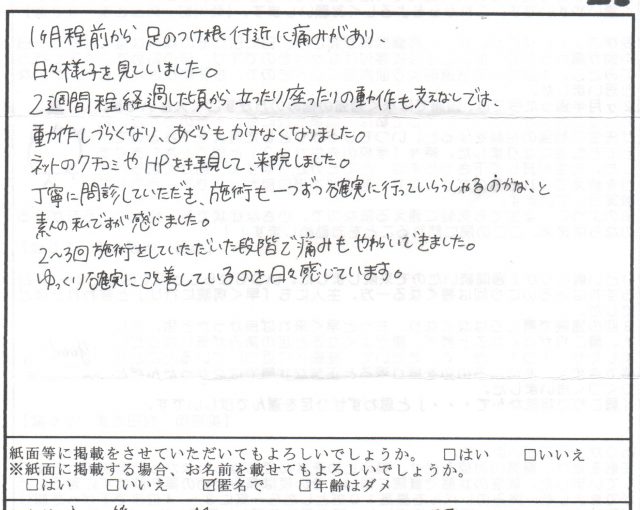 1ヶ月程前から足のつけ根付近に痛みがあり、
日々様子を見ていました。
2週間程経過した頃から立ったり座ったりの動作も支えなしでは、
動作しづらくなり、あぐらもかけなくなりました。
ネットのクチコミやHPを拝見して、来院しました。
丁寧に問診していただき、施術も一つずつ確実に行っていらっしゃるのかな、と
素人の私ですが感じました。
2~3回施術をしていただいた段階で痛みもやわらいできました。
ゆっくり確実に改善しているのを日々感じています。
紙面等に掲載をさせていただいてもよろしいでしょうか。 □はい □いいえ
※紙面に掲載する場合、お名前を載せてもよろしいでしょうか。
□はい □いいえ ☑匿名で □年齢はダメ